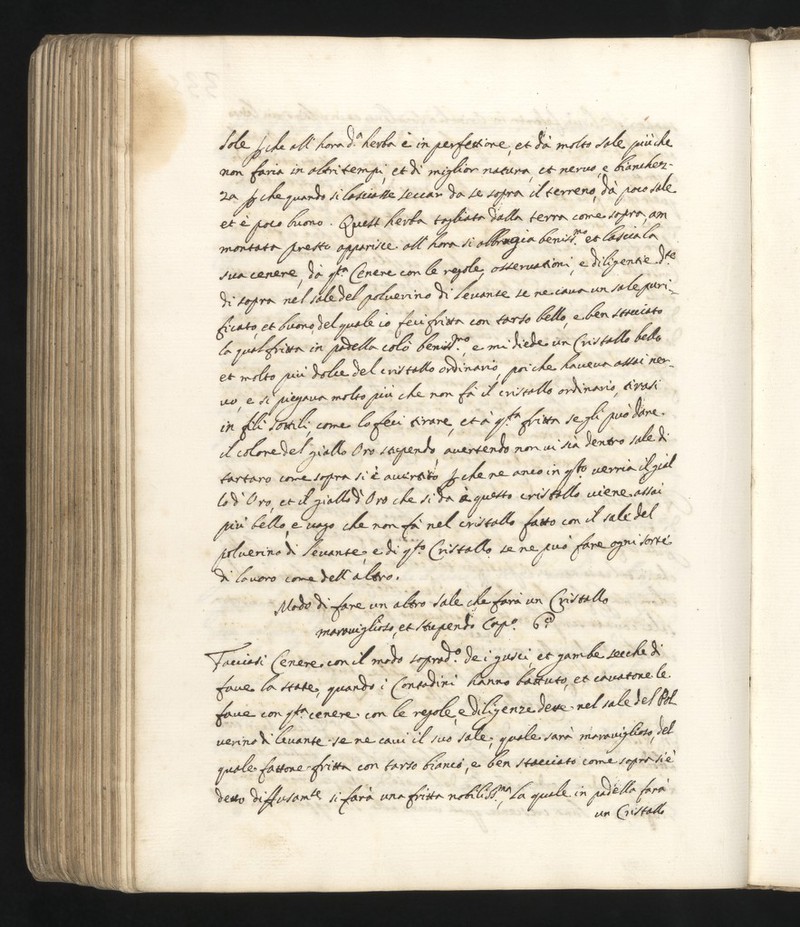 sole p̱che all'hora d.ª herba è in perfettione, et dà molto sale più che
non faria in altri tempi, et di miglior natura, et nervo, e bianchez-
za p̱che quando si lasciasse seccar da se sopra il terreno, dà poco sale
et è poco buono. Quest'herba tagliata dalla terra come sopra, am
montata presto apparisce all'hora si abbrugia benis.mo et lascia la
sua cenere, dà q.ta Cenere con le regole, osservationi, e diligentie d.te
di sopra nel sale del polverino di levante se ne cava un sale puri-
ficato, et buono del quale io feci fritta con tarso bello, e ben stacciato
la qual fritta in padella colò beniss.mo, e mi diede un Cristallo bello
et molto più dolce del cristallo ordinario, poiche haveva assai ner-
vo, e si piegava molto più che non fà il cristallo ordinario, tirasi
in fili sottili, come lo feci tirare, et à q.ta fritta se gli può dare
il colore del giallo Oro stupendo, avertendo non vi sià dentro sale di
tartaro come sopra si è avirtito p̱che ne anco in q.to verria il gial
lo d'Oro, et il giallo d'Oro che si dà à questo cristallo viene assai
più bello, e vago che non fà nel cristallo fatto con il sale del
polverino di levante, e di q.to Cristallo se ne può fare ogni sorte
di lavoro come dell'altro.
Modo di fare un altro sale che farà un Cristallo
maraviglioso, et stupendo Cap.o 6.o
Facciasi Cenere con il modo soprad.o de i gusci, et gambe secche di
fave la state, quando i Contadini hanno battuto, et cavatone le
fave con q.ta cenere con le regole, e diligenze dette nel sale del Pol
verino di levante se ne cavi il suo sale, quale sarà maraviglioso, del
quale fattone fritta con tarso bianco, e ben stacciato come sopra si è
detto diffusam.te si farà una fritta nobiliss.ma, la quale in padella farà
un Cristallo